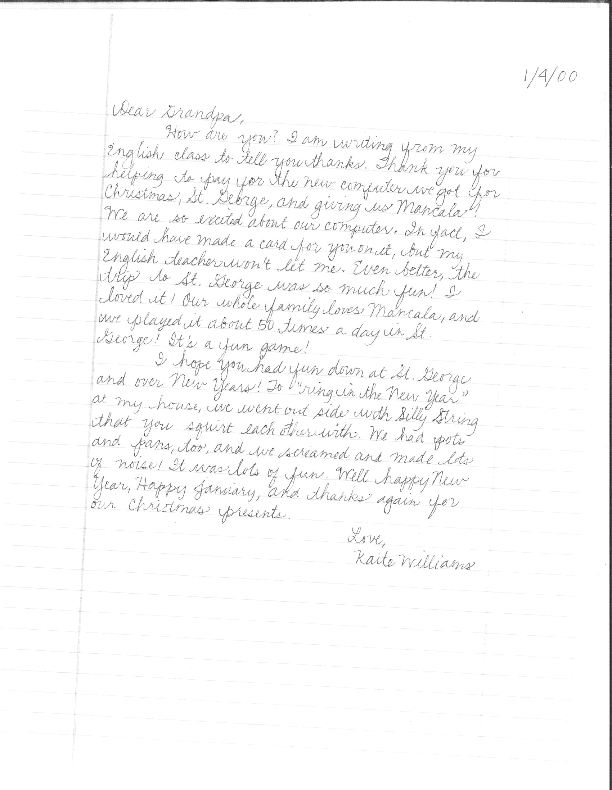 1/4/00
Dear Grandpa,
How are you? I am writing from my
English class to tell you thanks. Thank you for
helping to pay for the new computer we got for
Christmas, St. George, and giving us Mancala!
We are so excited about our computer. In fact, I
would have made a card for you on it, but my
English teacher won't let me. Even better, the
trip to St. George was so much fun! I
loved it! Our whole family loves Mancala, and
we played it about 50 times a day in St.
George! It's a fun game!
I hope you had fun down at St. George
and over New Years! To "ring in the New Year"
at my house, we went out side with Silly String
that you squirt each other with. We had pots
and pans, too, and we screamed and made lots
of noise! It was lots of fun. Well happy New
Year, Happy January, and thanks again for
our Christmas presents.
Love,
Kaite Williams